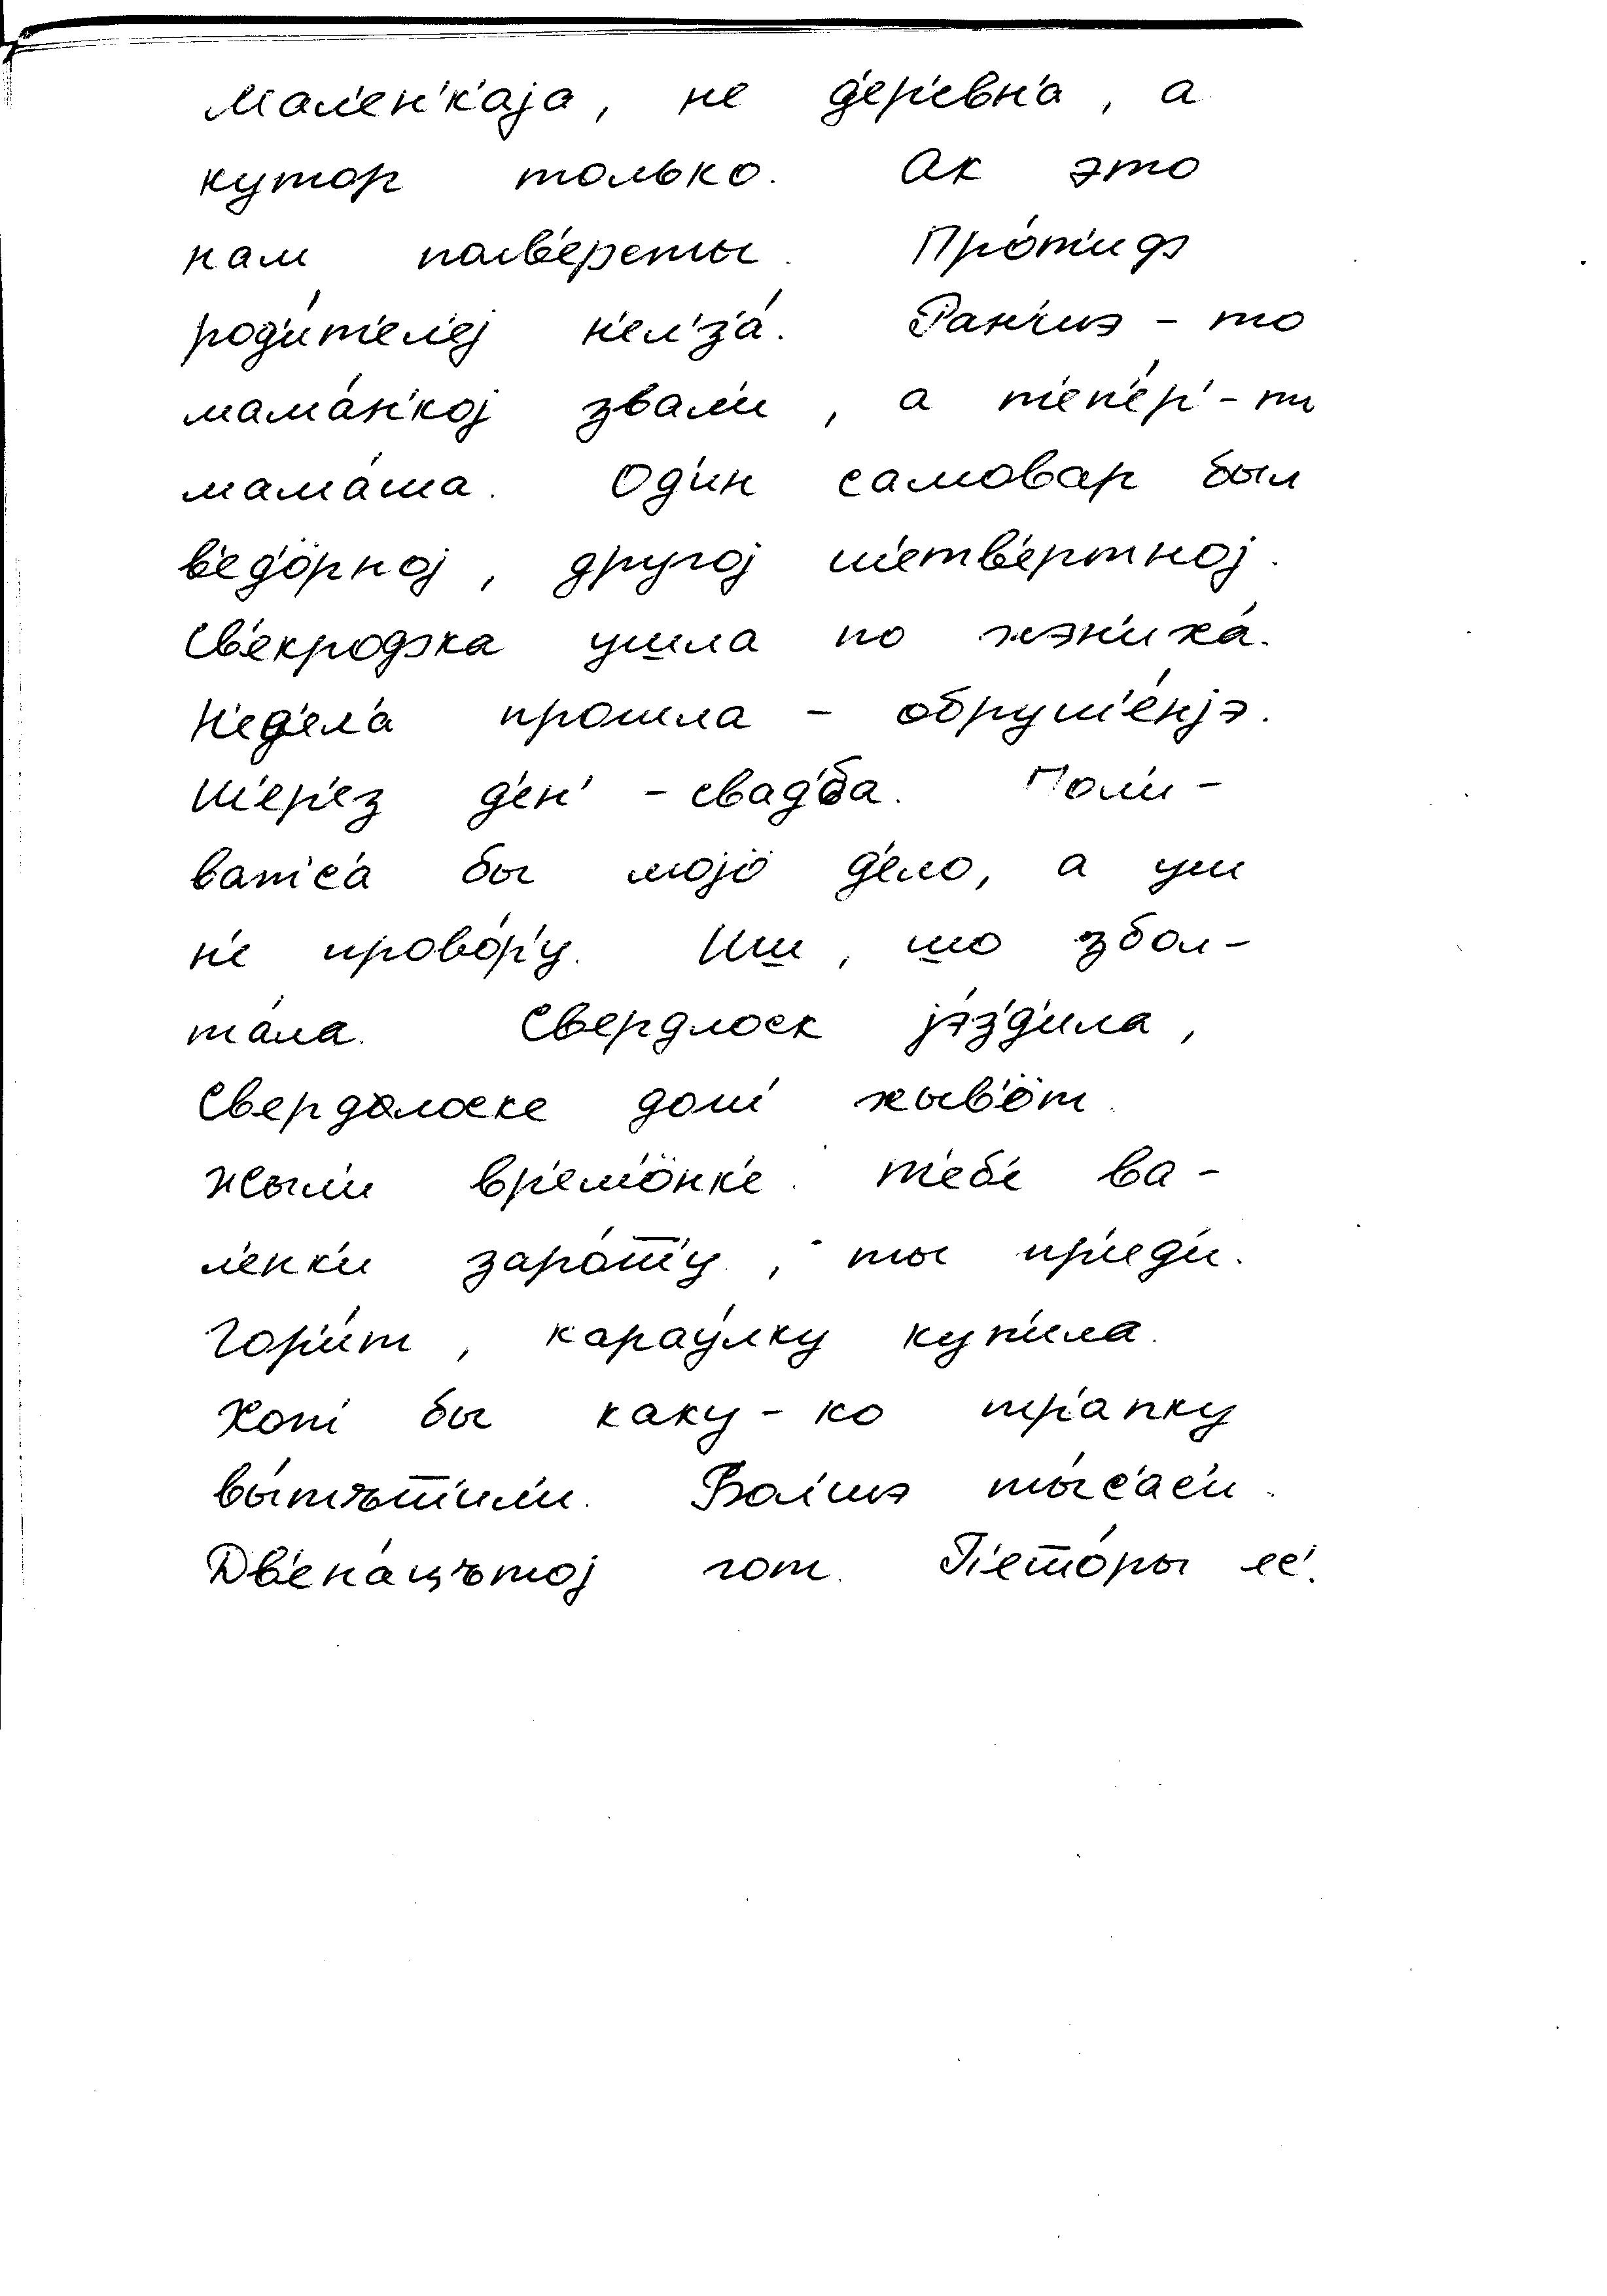 Мал'ен'к'аја, не д'ер'евн'а, а
кутор только. Ак это
нам полв'ерсты. Про́т'ифэ
род'и́т'ел'еј н'ел'з'а́. Ран'шэ-то
мама́н'кој звал'и, а т'еп'е́р'-ти
мама́ша. Од'ин самовар был
в'ед'ӧрној, другој ш'етв'ертној.
Св'екрофка ушла по жэн'иха́.
Н'ед'ел'а прошла – обруш'е́нјэ.
Ш'ер'ез д'ен' – свад'ба. Пол'и-
ват'с'а бы мојӧ д'ело, а уш
н'е прово́р'у. Иш, шо збол-
та́ла. Свердлоск јэ́з'д'ила,
Свердолоске дош' жыв'ӧт.
Жыл'и вр'ем'ӧнк'е. Т'еб'е ва-
л'енк'и заро́т'у, ты пр'ид'и.
Гор'и́т, карау́лку куп'ила.
Хот' бы каку-ко тр'апку
вы́тъшш'ил'и. Бол'шэ ты́с'ас'и.
Дв'ена́цътој гот. П'ето́ры ес'.